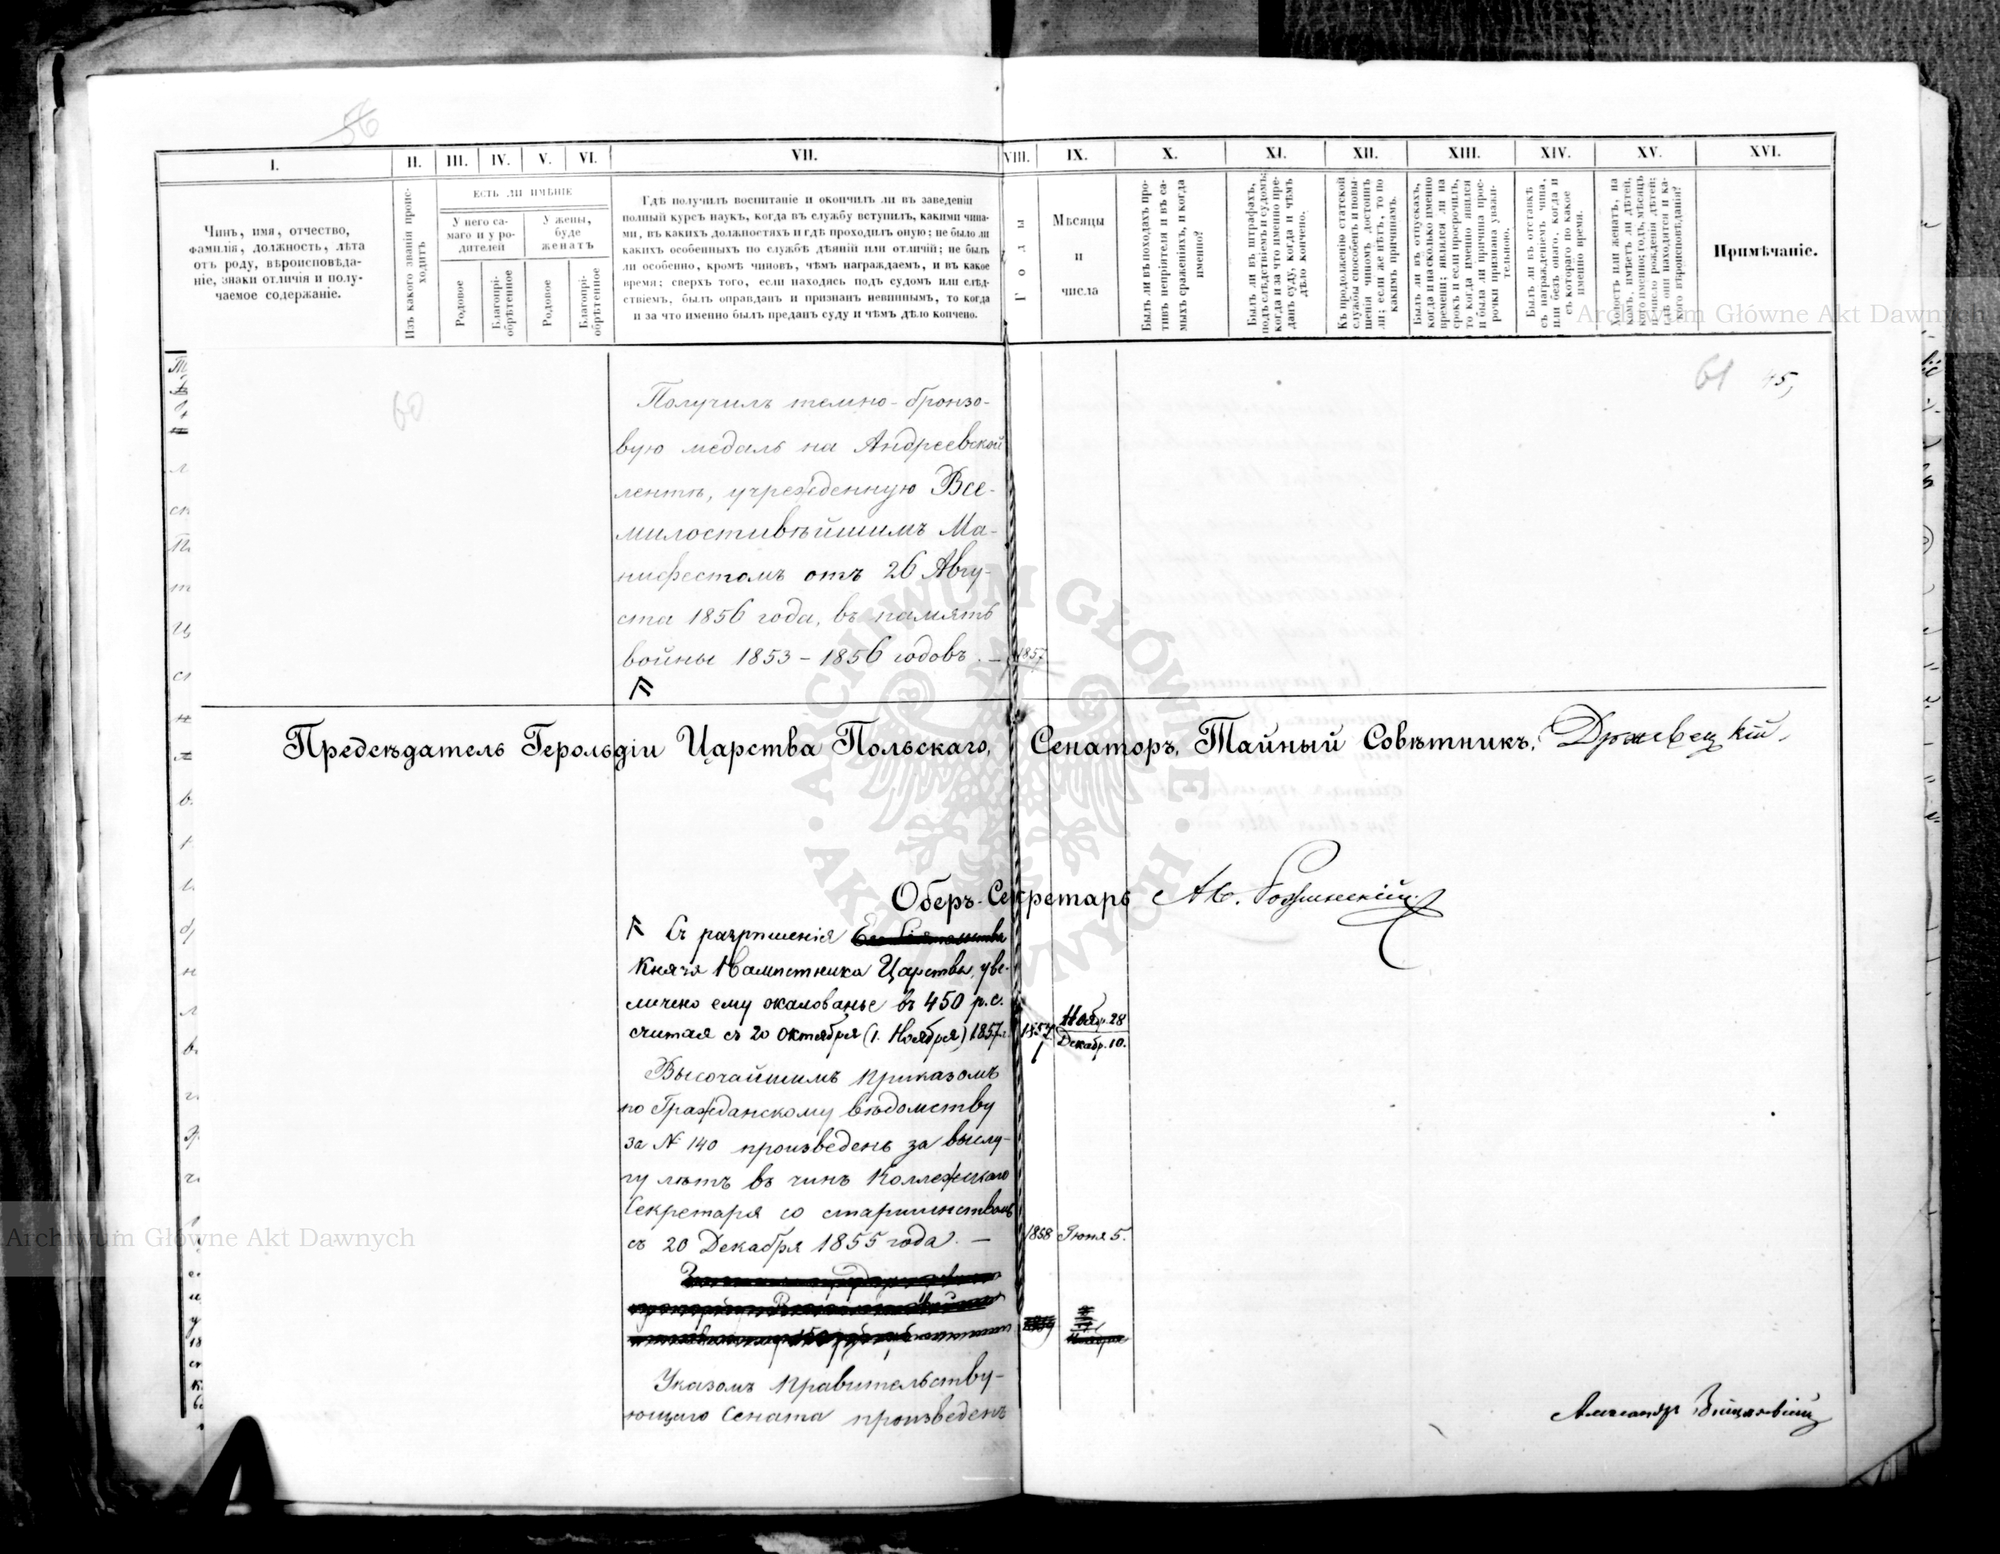 56
I.
II.
III.
IV.
V.
VI.
VII.
VIII.
IX.
X.
XI.
XII.
XIII.
XIV.
XV.
XVI.
Чинъ, имя, отчество,
фамилія, должность, лѣта
отъ роду, вѣроисповѣда-
ніе, знаки отличія и полу-
чаемое содержаніе.
Изъ какого званія проис-
ходитъ.
ЕСТЬ ЛИ ИМѢНІЕ
У него са-
маго и у ро-
дителей
У жены,
буде
женатъ
Родовое
Благопрі-
обрѣтенное
Родовое
Благопрі-
обрѣтенное
Гдѣ получилъ воспитаніе и окончилъ ли въ заведеніи
полный курсъ наукъ, когда въ службу вступилъ, какими чина-
ми, въ какихъ должностяхъ и гдѣ проходилъ оную; не было ли
какихъ особенныхъ по службѣ дѣяній или отличій; не былъ
ли особенно, кромѣ чиновъ, чѣмъ награждаемъ, и въ какое
время; сверхъ того, если находясь подъ судомъ или слѣд-
ствіемъ, былъ оправданъ и признанъ невиннымъ, то когда
и за что именно былъ преданъ суду и чѣмъ дѣло кончено.
Годы
Мѣсяцы
и
числа
Былъ ли въ походахъ про-
тивъ непріятеля и въ са-
мыхъ сраженіяхъ, и когда
именно?
Былъ ли въ штрафахъ,
подъ слѣдствіемъ и судомъ;
когда и за что именно пре-
данъ суду, когда и чѣмъ
дѣло кончено.
Къ продолженію статской
службы способенъ и повы-
шенія чиномъ достоинъ
ли; если же нѣтъ, то по
какимъ причинамъ.
Былъ ли въ отпускахъ,
когда и на сколько именно
времени; явился ли на
срокъ и если просрочилъ,
то когда именно явился
и была ли причина прос-
рочки признана уважи-
тельною.
Былъ ли въ отставкѣ
съ награжденіемъ чина,
или безъ онаго, когда и
съ котораго по какое
именно время.
Холостъ или женатъ, на
комъ, имѣетъ ли дѣтей,
кого именно; годъ, мѣсяцъ
и число рожденія дѣтей;
гдѣ они находятся и ка-
кого вѣроисповѣданія?
Примѣчаніе.
Archiwum Główne Akt Dawnych
60
61
45,
Получилъ темно-бронзо-
вую медаль на Андреевской
лентѣ, учрежденную Все-
милостивѣйшимъ Ма-
нифестомъ отъ 26 Авгу-
ста 1856 года, въ память
войны 1853 – 1856 годовъ. –
1857
ARCHIWUM GŁÓWNE AKT DAWNYCH
Предсѣдатель Герольдіи Царства Польскаго, Сенаторъ, Тайный Совѣтникъ, Држевецкій.
Оберъ-Секретарь
Съ разрѣшенія
Князя Намѣстника Царства, уве-
личено ему жалованье въ 450 р.с.
считая съ 20 Октября (1. Ноября) 1857 г.
1857
Нояб. 28
Декабр. 10.
Высочайшимъ приказомъ
по Гражданскому вѣдомству
за № 140 произведенъ за выслу-
гу лѣтъ въ чинъ Коллежскаго
Секретаря со старшинствомъ
съ 20 Декабря 1855 года. –
1858
Іюня 5.
Указомъ Правительству-
ющаго Сената произведенъ
Archiwum Główne Akt Dawnych
Александръ